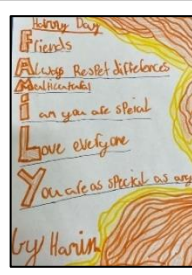 Harmony Day
Friends
Always Respet differences
Multicultural
i am you are speial
Love everyone
You are as special as any
by Harin